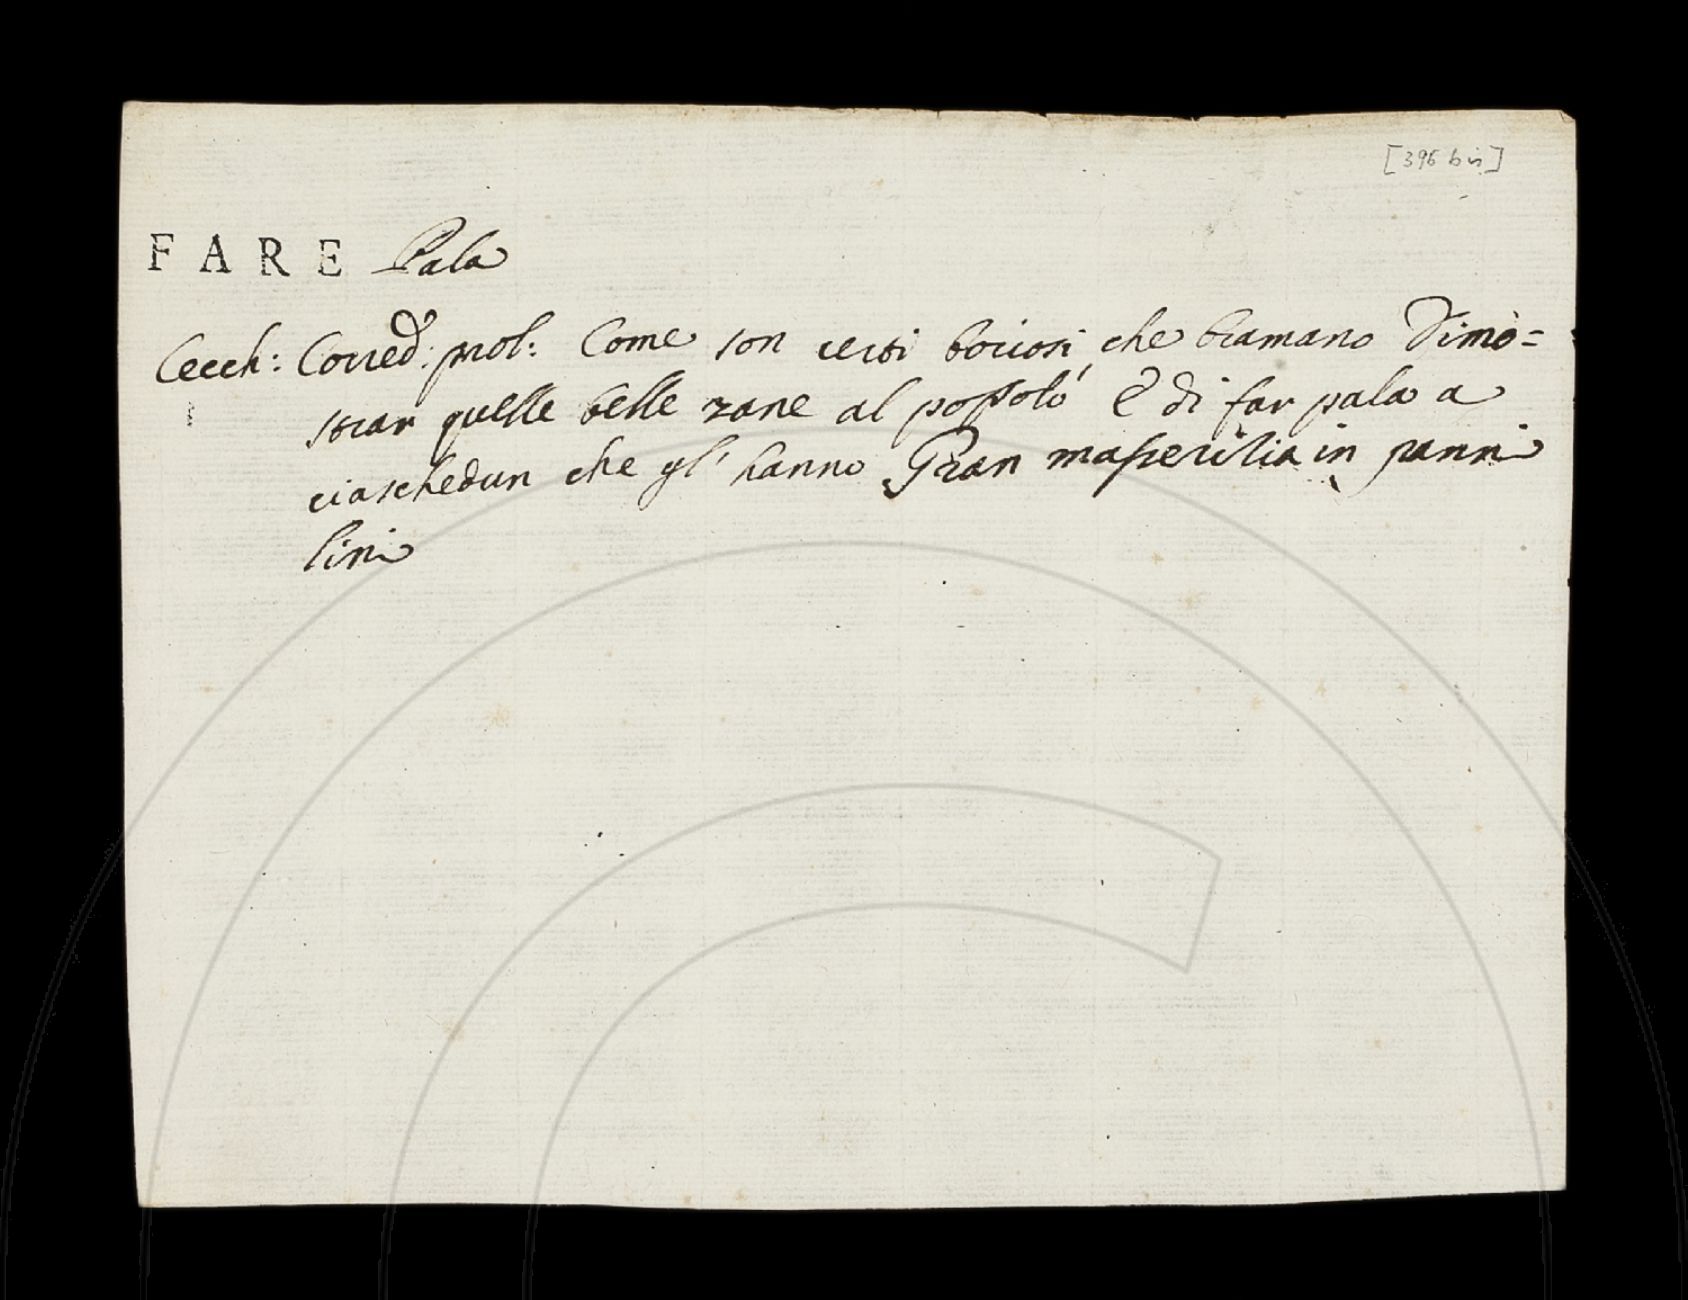 [396 bis]
FARE Pala
Cecch: Corred: prol: Come son certi boriosi, che bramano Dimo=
strar quelle belle zane al popolo, E di far pala a
ciaschedun che gl' hanno Gran masserizia in panni
lini